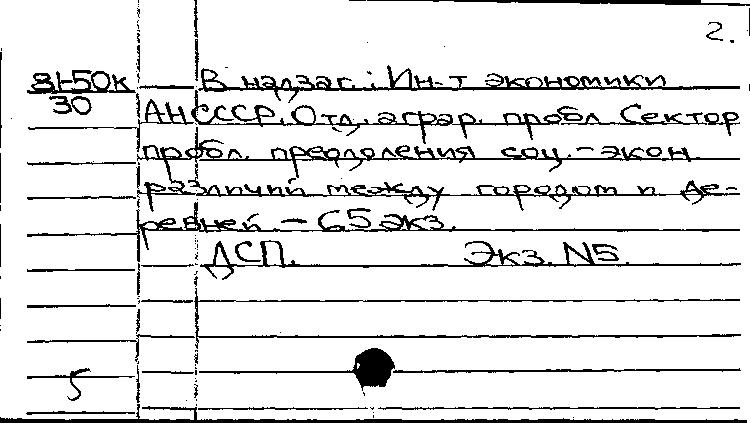 2.
81-50к
30
В надзаг.: Ин-т экономики
АН СССР, Отд. аграр. пробл. Сектор
пробл. преодоления соц.-экон.
различий между городом и де-
ревней. – 65 экз.
ДСП. Экз. N5.
5